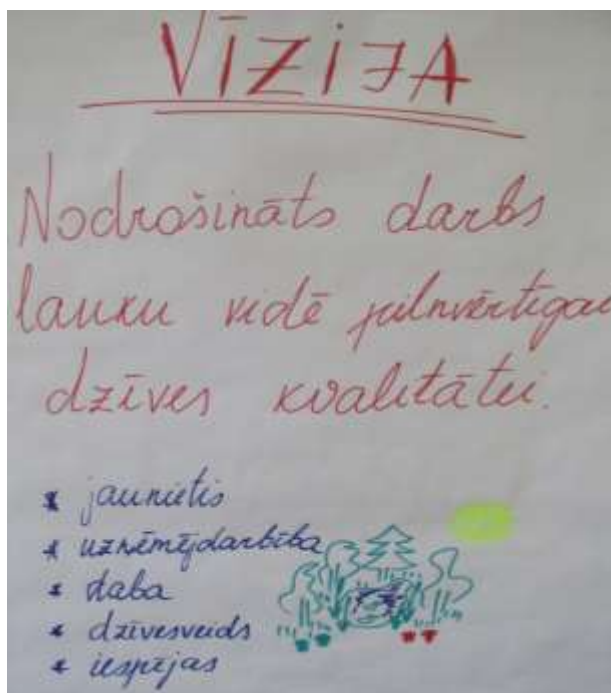 VĪZIJA
Nodrošināts darbs
lauku vidē pilnvērtīgai
dzīves kvalitātei.
* jaunietis
* uzņēmējdarbība
* daba
* dzīvesveids
* iespējas